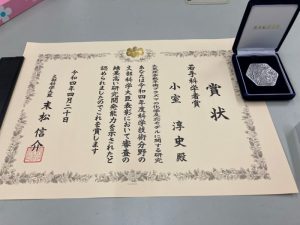 賞状
若手科学者賞
小室 淳史 殿
あなたは令和四年度科学技術分野の
文部科学大臣表彰において審査の
結果高い研究開発能力を示されたと
認められましたのでこれを賞します
令和四年四月二十日
文部科学大臣
末松信介